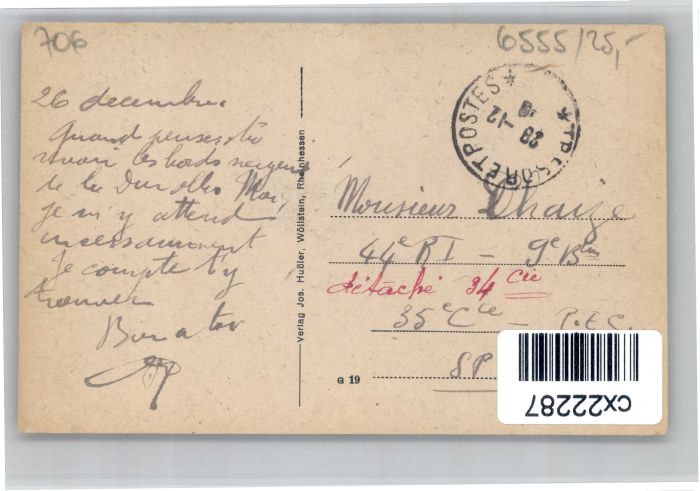 706
6555/25,-
26 decembre.
Quand penses-tu
revoir les bords neigeux
de la Durolle Moi,
je m'y attend
incessamment
Je compte t'y
trouver
Bien a toi
Verlag Jos. Hußler, Wöllstein, Rheinhessen
TRESOR ET POSTES
28 -12
Monsieur Chaize
44e RI - 9e Bon
détaché 34 Cie
35e Cie - P.E.C.
SP
G 19
cx22287